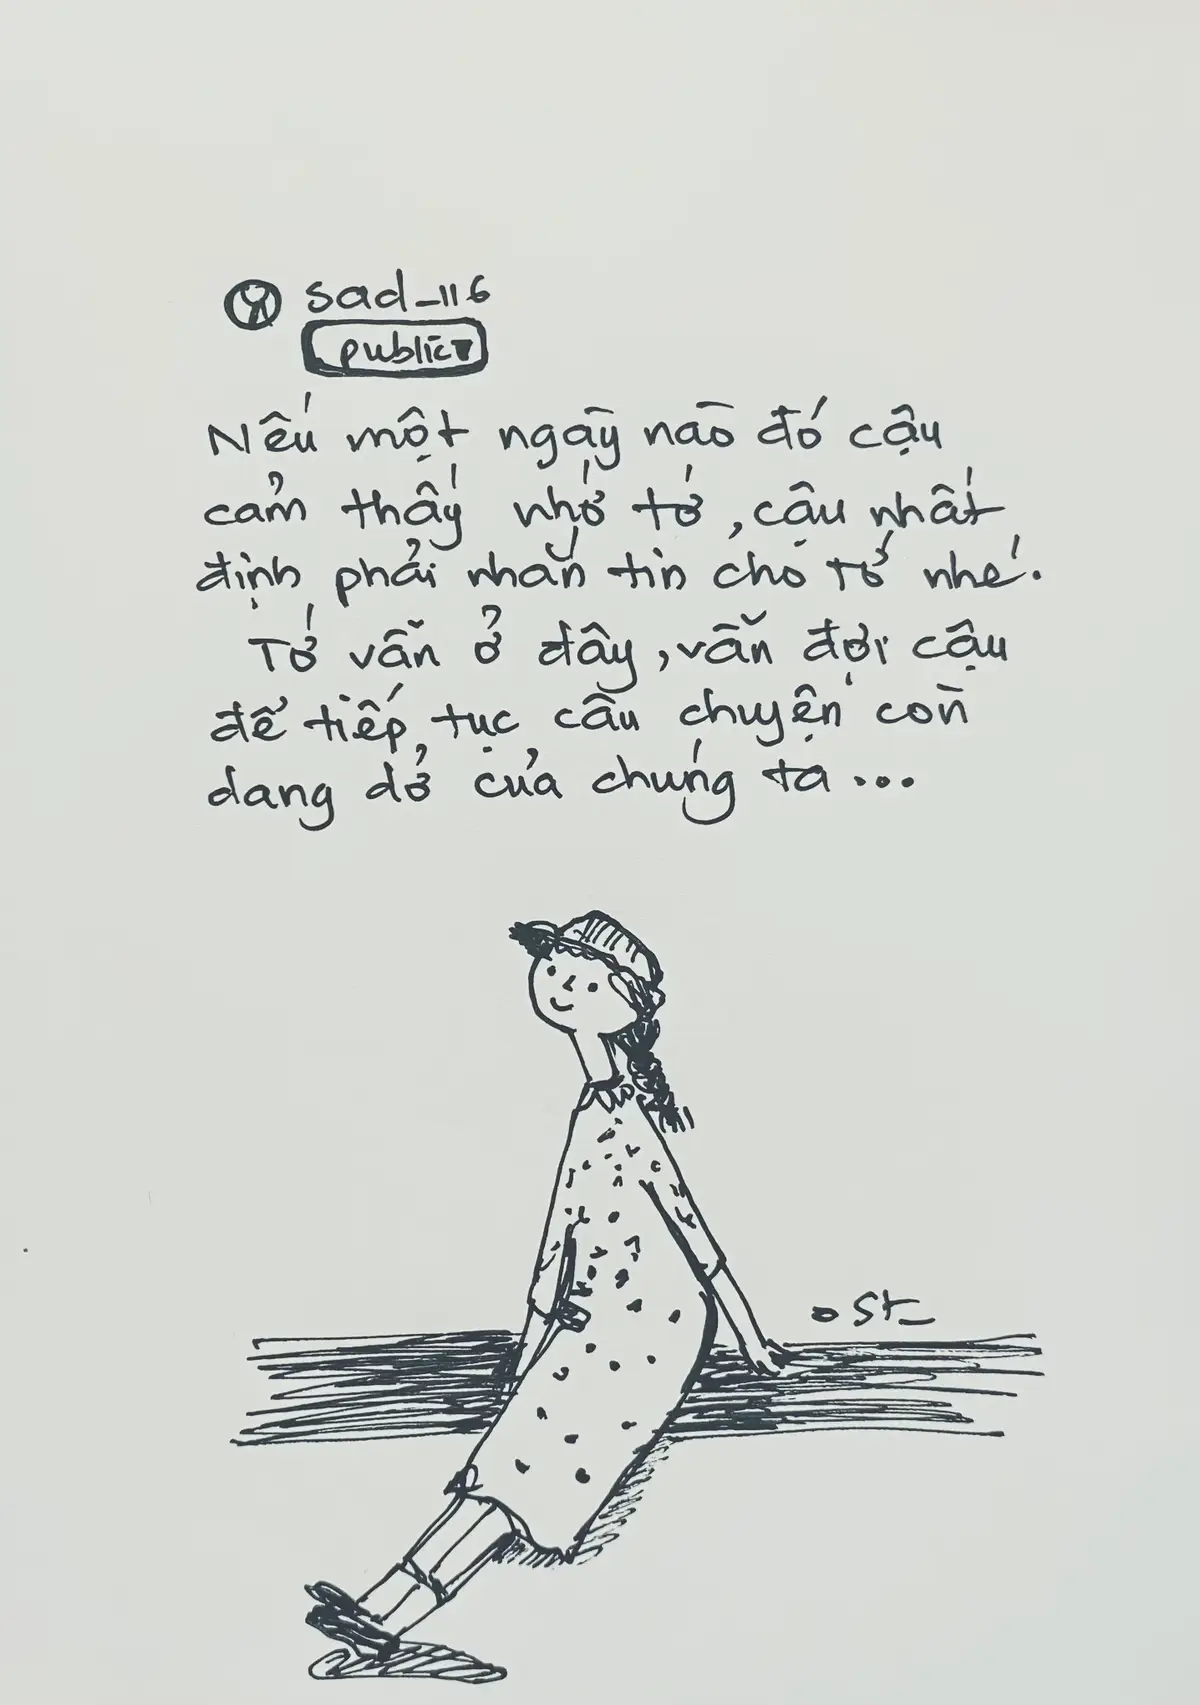 sad_116
public▾
Nếu một ngày nào đó cậu
cảm thấy nhớ tớ, cậu nhất
định phải nhắn tin cho tớ nhé.
Tớ vẫn ở đây, vẫn đợi cậu
để tiếp tục câu chuyện còn
dang dở của chúng ta...